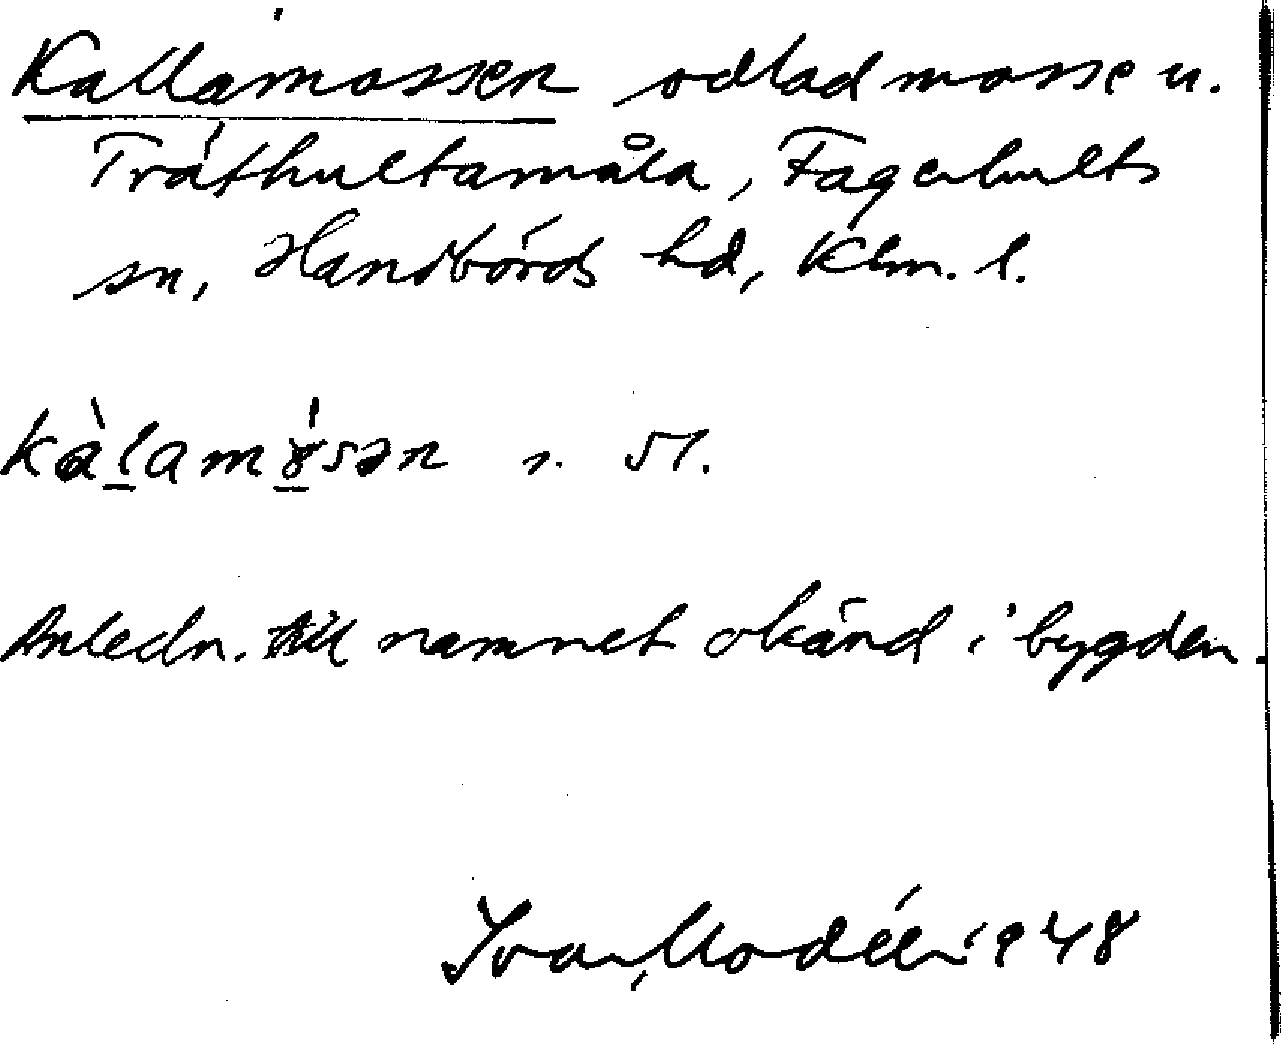 Kallamossen odlad mosse u.
Träthultamåla, Fagerhults
sn, Handbörds hd, Klm. l.
kàlamɤ̀sən s. 51.
Anledn. till namnet okänd i bygden.
Ivar Modéer 1948